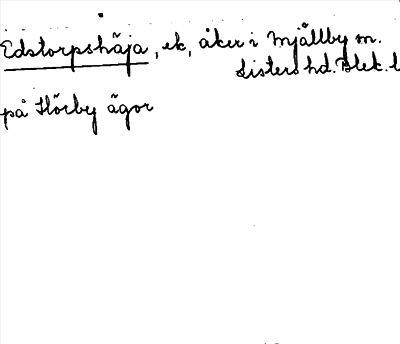 Edstorpshäja, ek, åker i Mjällby sn.
Listers hd. Blek. l
på Hörby ägor